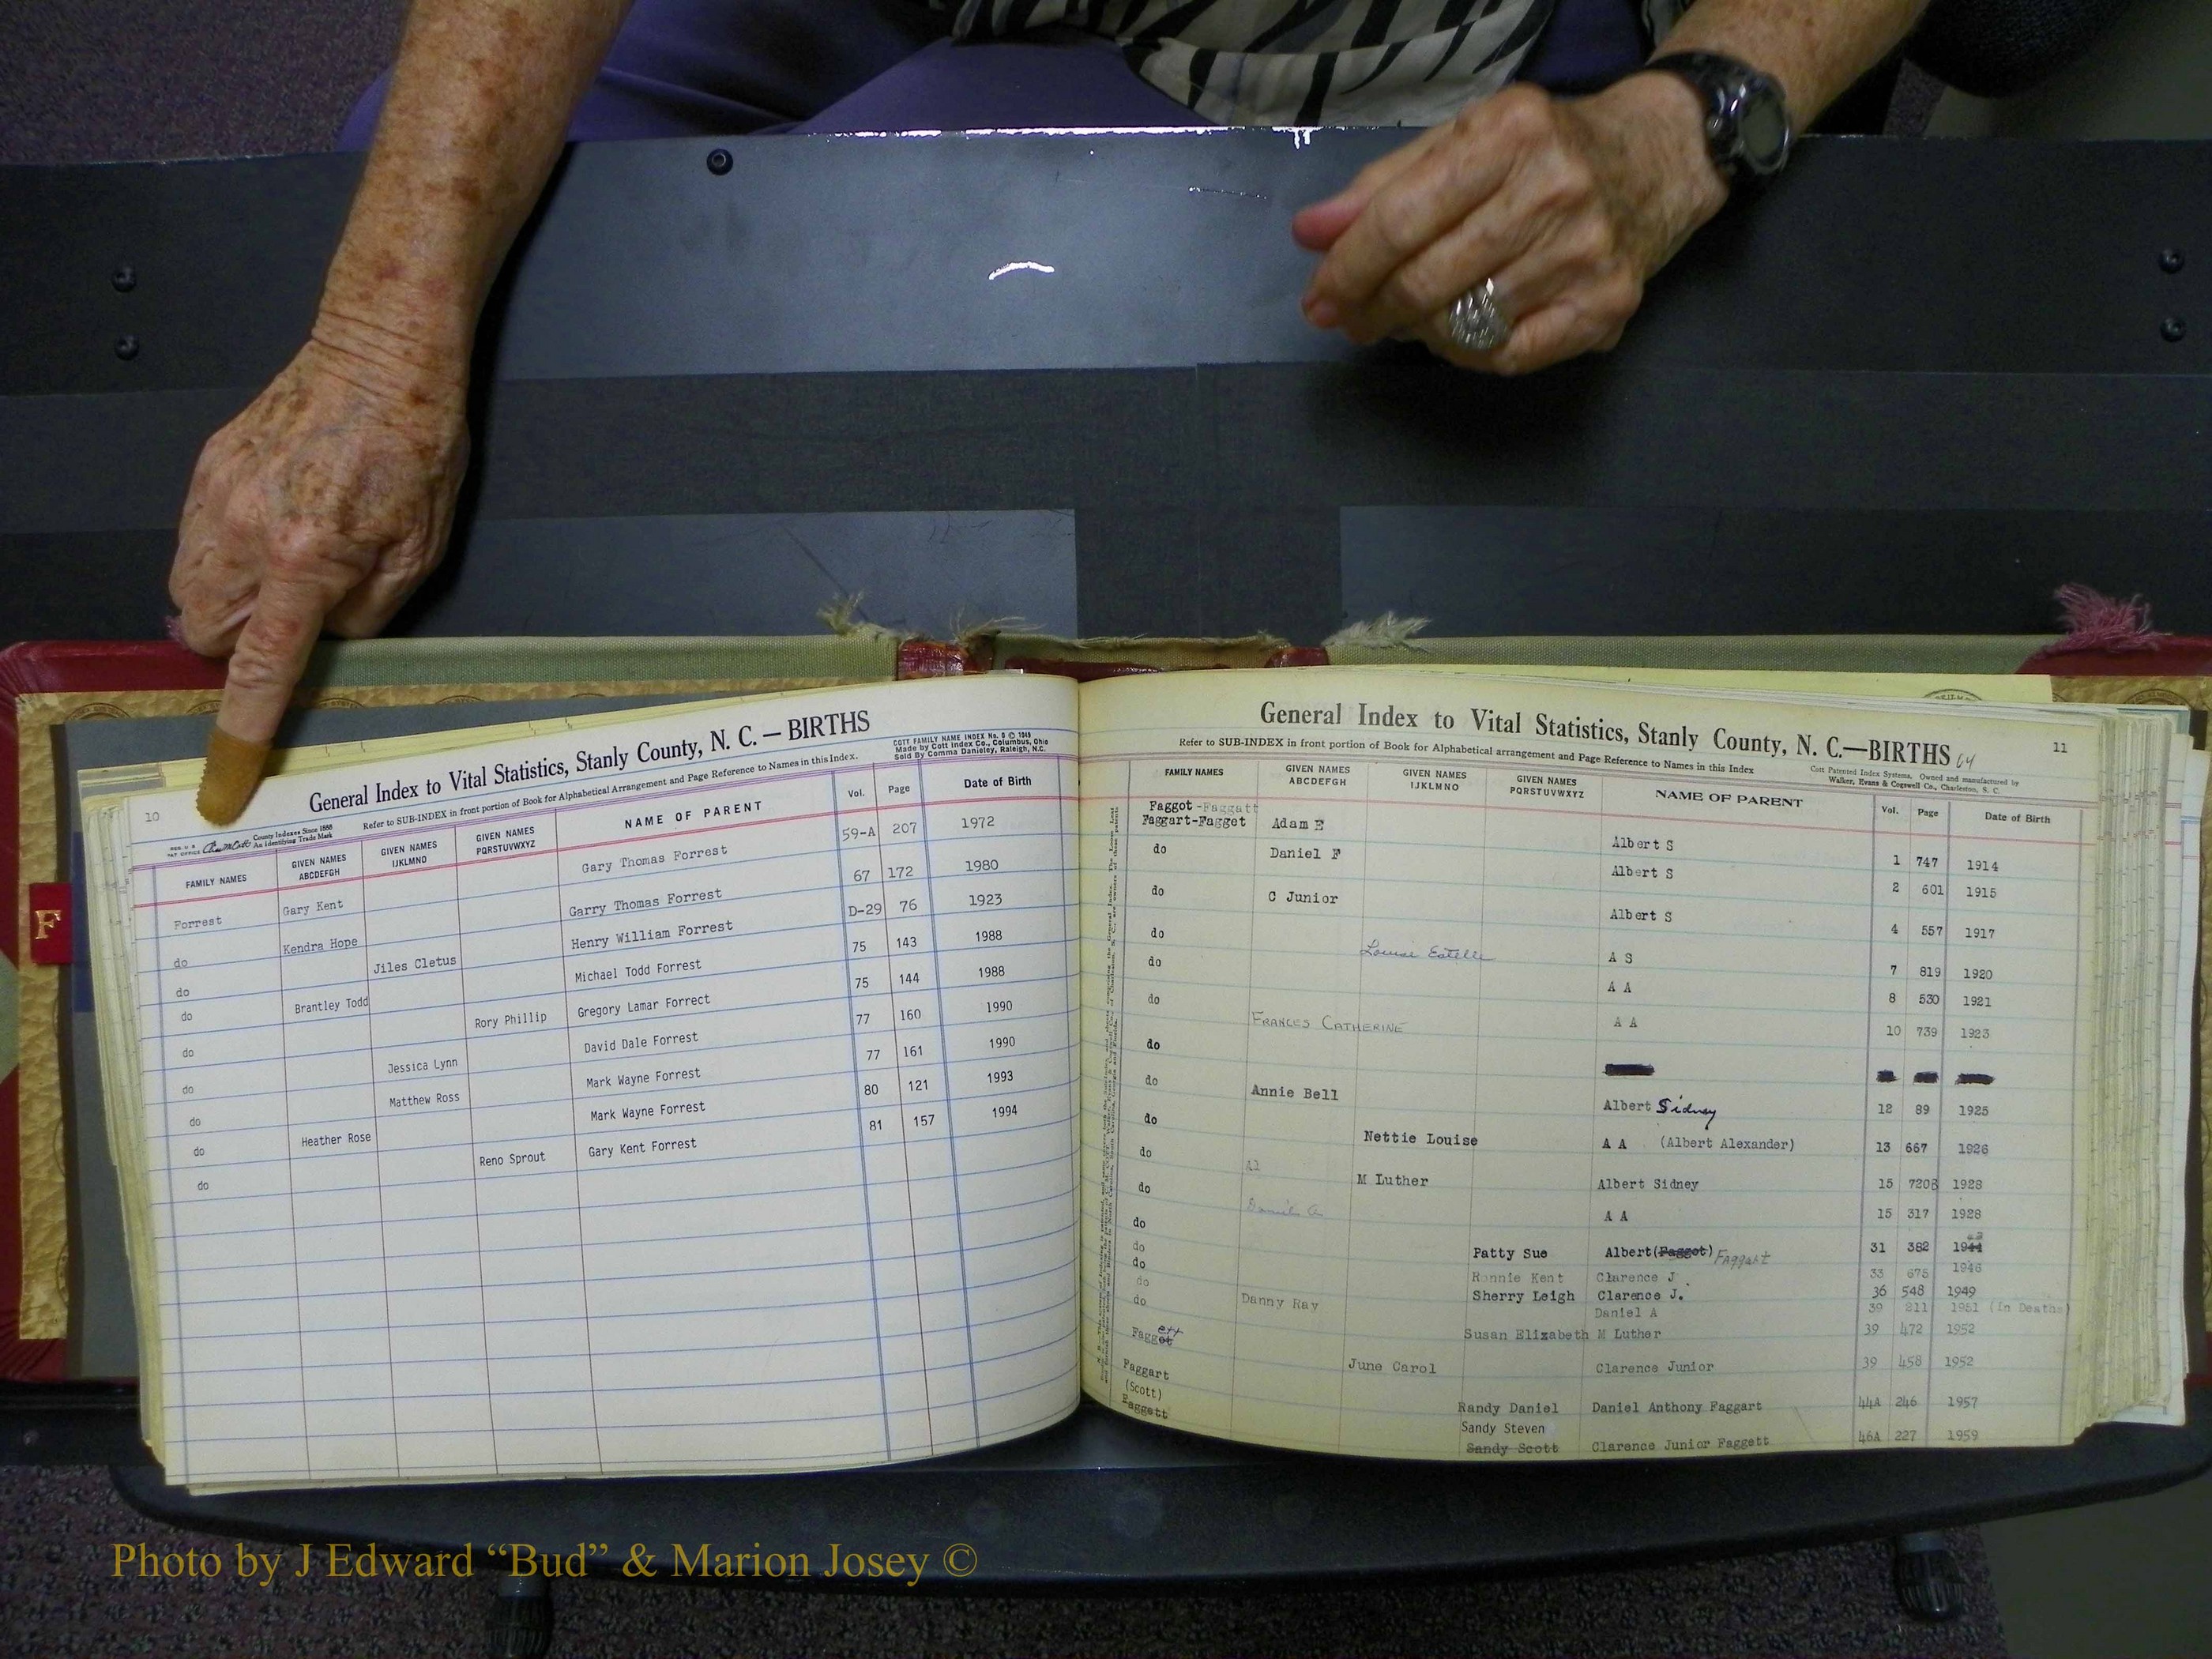 F
10
General Index to Vital Statistics, Stanly County, N. C. — BIRTHS
COTT FAMILY NAME INDEX No. 6 © 1949
Made by Cott Index Co., Columbus, Ohio
Sold By Comma Danieley, Raleigh, N.C.
County Indexes Since 1888
An Identifying Trade Mark
Refer to SUB-INDEX in front portion of Book for Alphabetical Arrangement and Page Reference to Names in this Index.
FAMILY NAMES GIVEN NAMES ABCDEFGH GIVEN NAMES IJKLMNO GIVEN NAMES PQRSTUVWXYZ NAME OF PARENT Vol. Page Date of Birth
Forrest Gary Kent Gary Thomas Forrest 59-A 207 1972
do Kendra Hope Garry Thomas Forrest 67 172 1980
do Jiles Cletus Henry William Forrest D-29 76 1923
do Brantley Todd Michael Todd Forrest 75 143 1988
do Rory Phillip Gregory Lamar Forrect 75 144 1988
do Jessica Lynn David Dale Forrest 77 160 1990
do Matthew Ross Mark Wayne Forrest 77 161 1990
do Heather Rose Mark Wayne Forrest 80 121 1993
do Reno Sprout Gary Kent Forrest 81 157 1994
General Index to Vital Statistics, Stanly County, N. C.—BIRTHS 64
11
Refer to SUB-INDEX in front portion of Book for Alphabetical arrangement and Page Reference to Names in this Index
Cott Patented Index Systems, Owned and manufactured by
Walker, Evans & Cogswell Co., Charleston, S. C.
FAMILY NAMES GIVEN NAMES ABCDEFGH GIVEN NAMES IJKLMNO GIVEN NAMES PQRSTUVWXYZ NAME OF PARENT Vol. Page Date of Birth
Faggot-Faggatt
Faggart-Fagget Adam E Albert S 1 747 1914
do Daniel F Albert S 2 601 1915
do C Junior Albert S 4 557 1917
do Louise Estelle A S 7 819 1920
do A A 8 530 1921
do FRANCES CATHERINE A A 10 739 1923
do
do Annie Bell Albert Sidney 12 89 1925
do Nettie Louise A A (Albert Alexander) 13 667 1926
do Al M Luther Albert Sidney 15 720B 1928
do Daniel A A A 15 317 1928
do Patty Sue Albert(Faggot) Faggart 31 382 1944
do Ronnie Kent Clarence J. 33 675 1946
do Sherry Leigh Clarence J. 36 548 1949
do Danny Ray Daniel A 39 211 1951 (In Deaths)
do Susan Elizabeth M Luther 39 472 1952
Faggot ett June Carol Clarence Junior 39 458 1952
Faggart Randy Daniel Daniel Anthony Faggart 44A 246 1957
(Scott) Sandy Steven
Faggett Sandy Scott Clarence Junior Faggett 46A 227 1959
Photo by J Edward “Bud” & Marion Josey ©